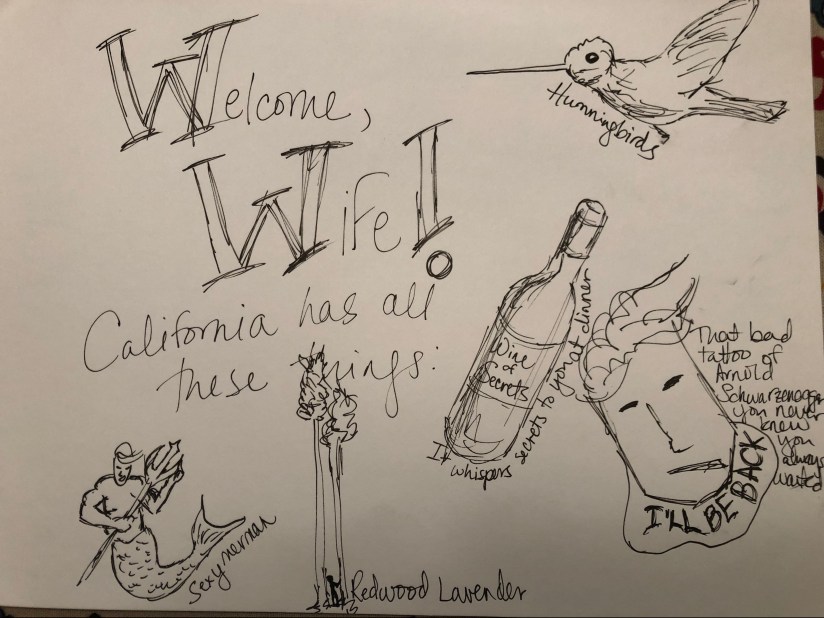 Welcome,
Wife!
California has all
these things:
Hummingbirds
Wine
of
Secrets
It whispers secrets to you at dinner
That bad
tattoo of
Arnold
Schwarzenegger
you never
knew
you
always
wanted
I'LL BE BACK
Sexy merman
Redwood Lavender